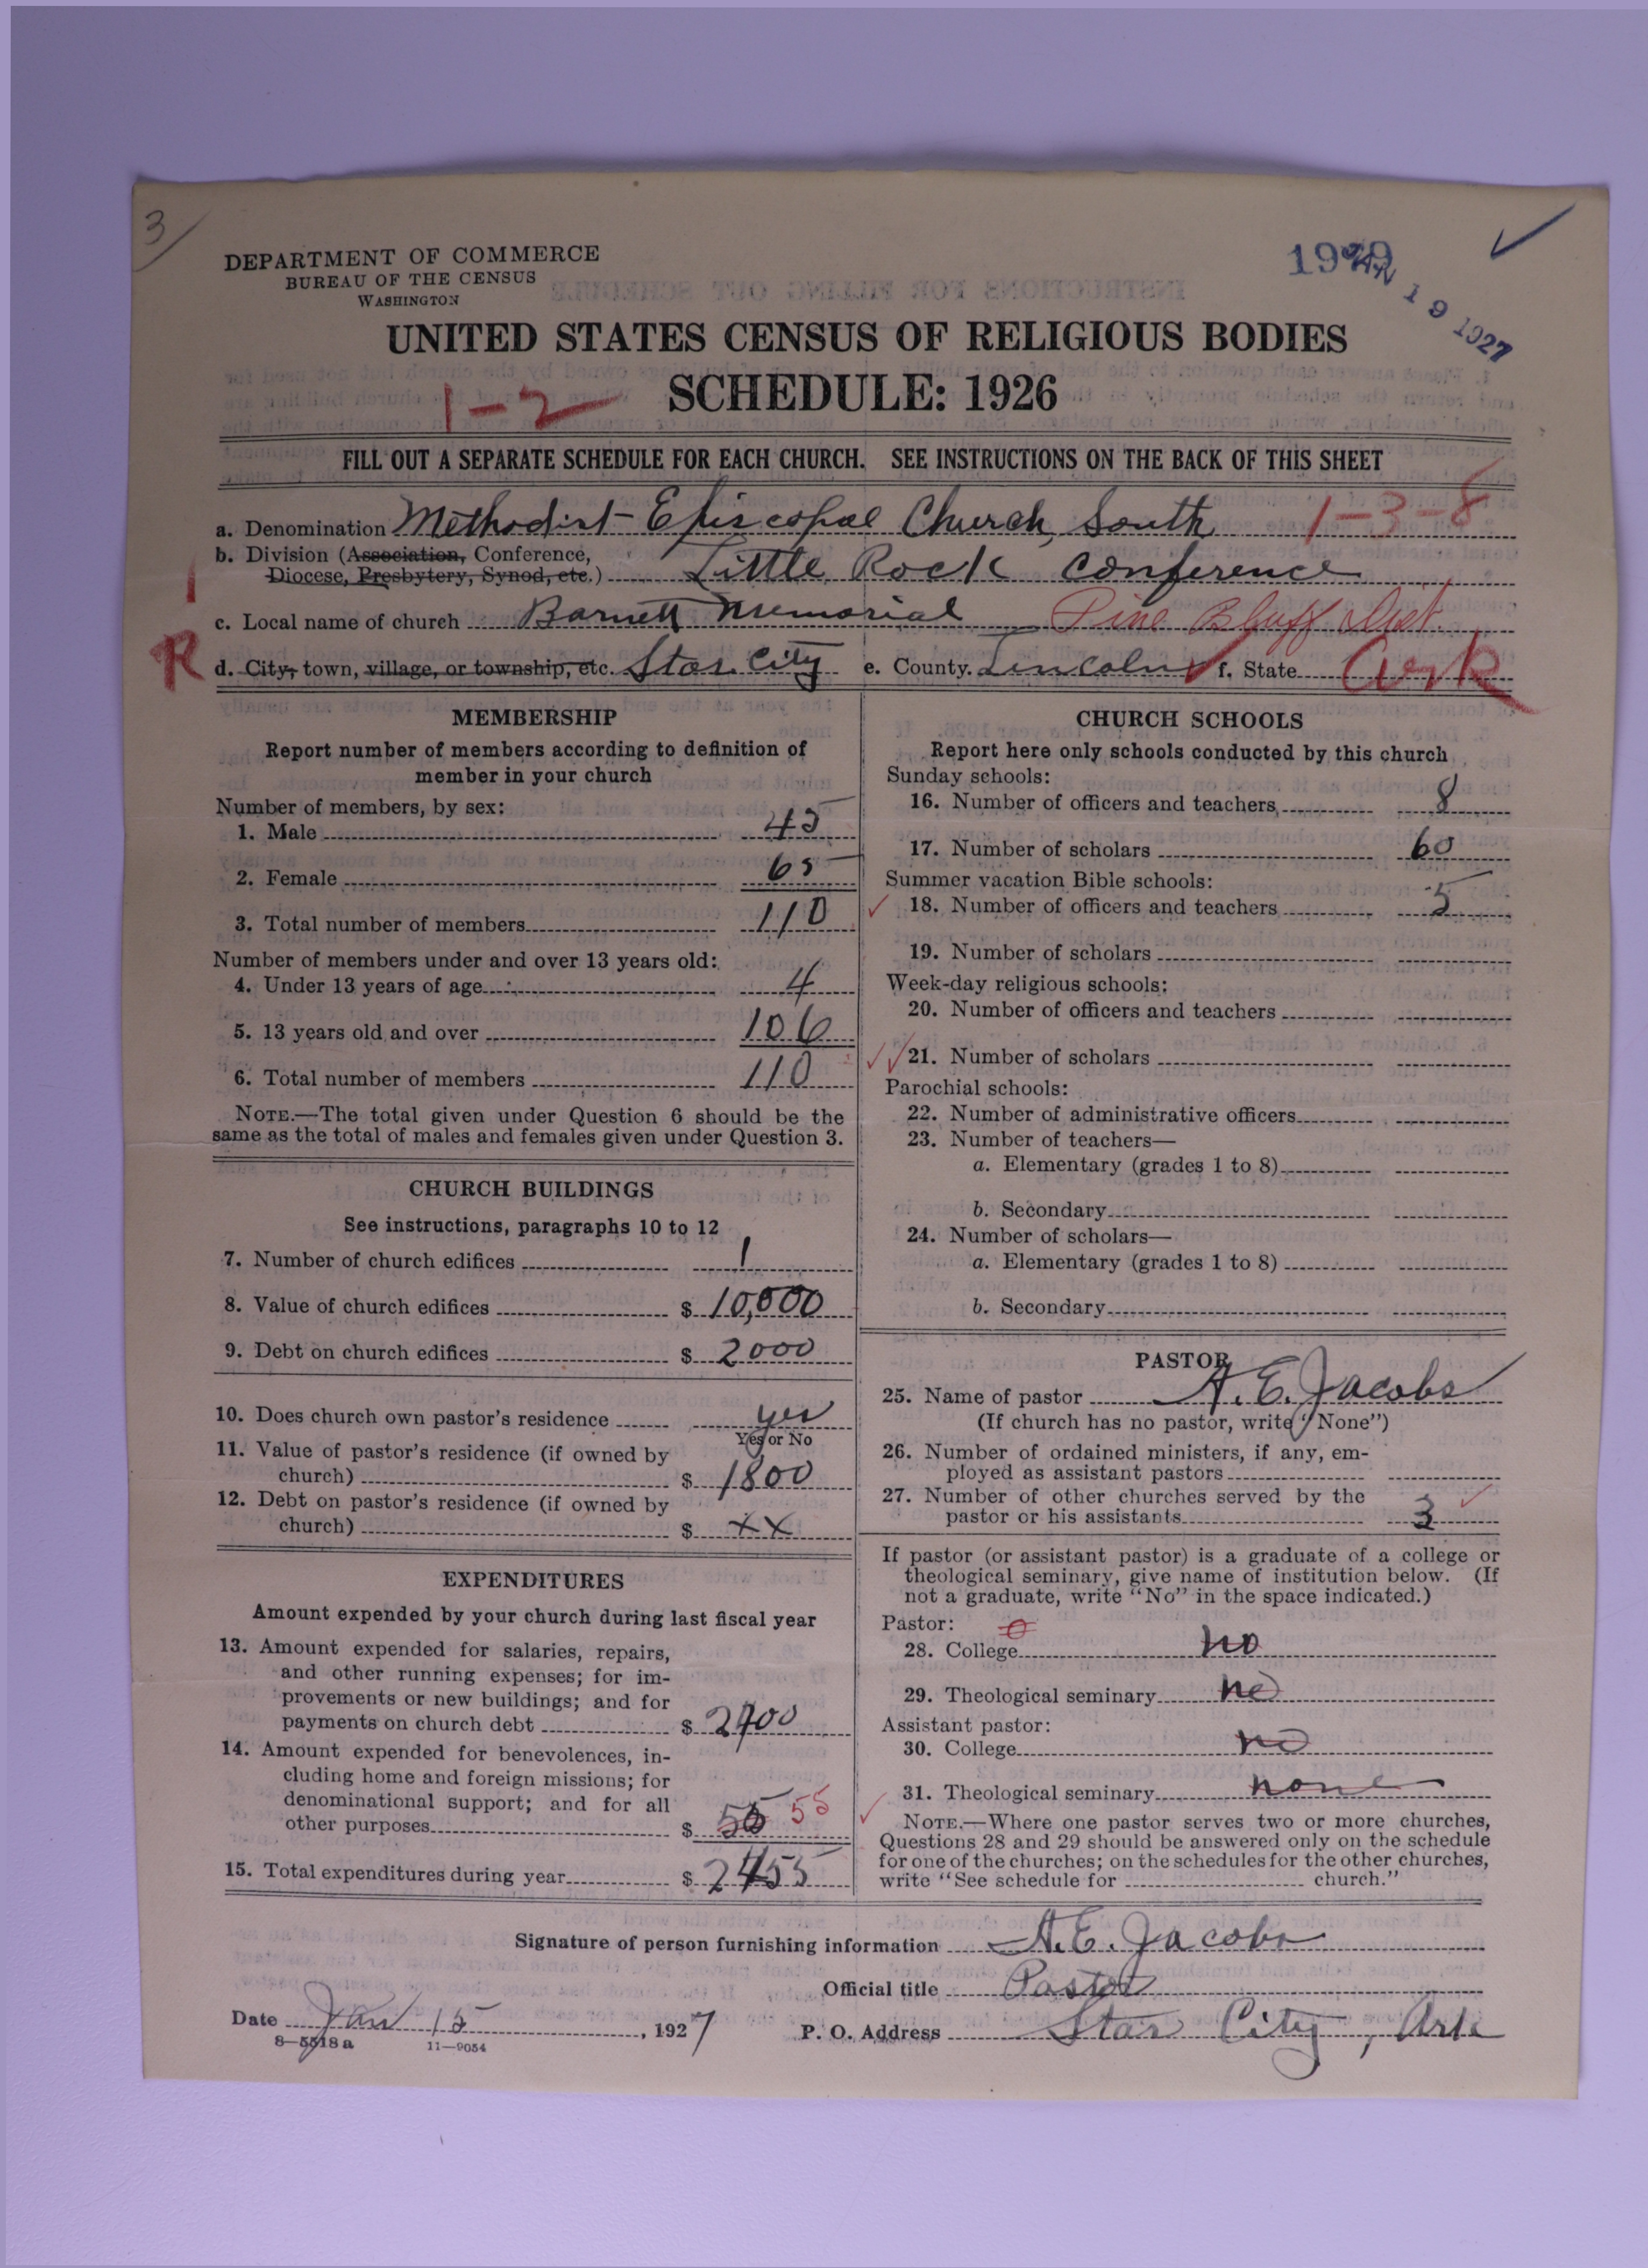 3/
DEPARTMENT OF COMMERCE
BUREAU OF THE CENSUS
WASHINGTON
JAN 19 1927
UNITED STATES CENSUS OF RELIGIOUS BODIES
SCHEDULE: 1926
1-2
FILL OUT A SEPARATE SCHEDULE FOR EACH CHURCH. SEE INSTRUCTIONS ON THE BACK OF THIS SHEET
a. Denomination Methodist Episcopal Church, South 1-3-8
b. Division (Association, Conference,
Diocese, Presbytery, Synod, etc.) Little Rock Conference
1
c. Local name of church Barnett Memorial Pine Bluff Dist.
R
d. City, town, village, or township, etc. Star City e. County. Lincoln f. State Ark
MEMBERSHIP
Report number of members according to definition of
member in your church
Number of members, by sex:
1. Male 45
2. Female 65
3. Total number of members 110
Number of members under and over 13 years old:
4. Under 13 years of age 4
5. 13 years old and over 106
6. Total number of members 110
NOTE.—The total given under Question 6 should be the
same as the total of males and females given under Question 3.
CHURCH BUILDINGS
See instructions, paragraphs 10 to 12
7. Number of church edifices 1
8. Value of church edifices $ 10,000
9. Debt on church edifices $ 2000
10. Does church own pastor's residence yes
Yes or No
11. Value of pastor's residence (if owned by
church) $ 1800
12. Debt on pastor's residence (if owned by
church) $ xx
EXPENDITURES
Amount expended by your church during last fiscal year
13. Amount expended for salaries, repairs,
and other running expenses; for im-
provements or new buildings; and for
payments on church debt $ 2400
14. Amount expended for benevolences, in-
cluding home and foreign missions; for
denominational support; and for all
other purposes $ 55 55
15. Total expenditures during year $ 2455
CHURCH SCHOOLS
Report here only schools conducted by this church
Sunday schools:
16. Number of officers and teachers 8
17. Number of scholars 60
Summer vacation Bible schools:
18. Number of officers and teachers 5
19. Number of scholars
Week-day religious schools:
20. Number of officers and teachers
21. Number of scholars
Parochial schools:
22. Number of administrative officers
23. Number of teachers—
a. Elementary (grades 1 to 8)
b. Secondary
24. Number of scholars—
a. Elementary (grades 1 to 8)
b. Secondary
PASTOR
25. Name of pastor A. E. Jacobs
(If church has no pastor, write "None")
26. Number of ordained ministers, if any, em-
ployed as assistant pastors
27. Number of other churches served by the
pastor or his assistants 3
If pastor (or assistant pastor) is a graduate of a college or
theological seminary, give name of institution below. (If
not a graduate, write "No" in the space indicated.)
Pastor: 0
28. College no
29. Theological seminary no
Assistant pastor:
30. College no
31. Theological seminary none
NOTE.—Where one pastor serves two or more churches,
Questions 28 and 29 should be answered only on the schedule
for one of the churches; on the schedules for the other churches,
write "See schedule for church."
Signature of person furnishing information A. E. Jacobs
Official title Pastor
Date Jan 15, 1927 P. O. Address Star City, Ark
8—5518 a 11—9054